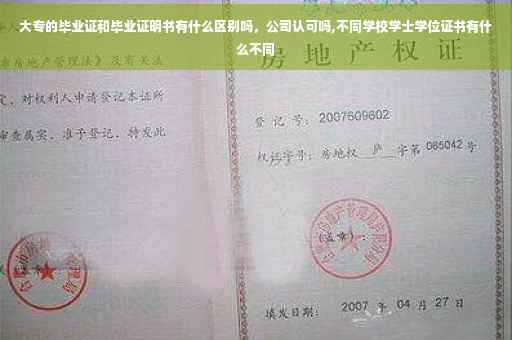 大专的毕业证和毕业证明书有什么区别吗，公司认可吗,不同学校学士学位证书有什
么不同
房地产管理法》及有关法
定，对权利人申请登记本证所
审查属实，准予登记，特发此
房地产权证
登记号：2007609602
权证字号：房地权 庐 字第 085042 号
（盖章）：
填发日期： 2007 年 04 月 27 日